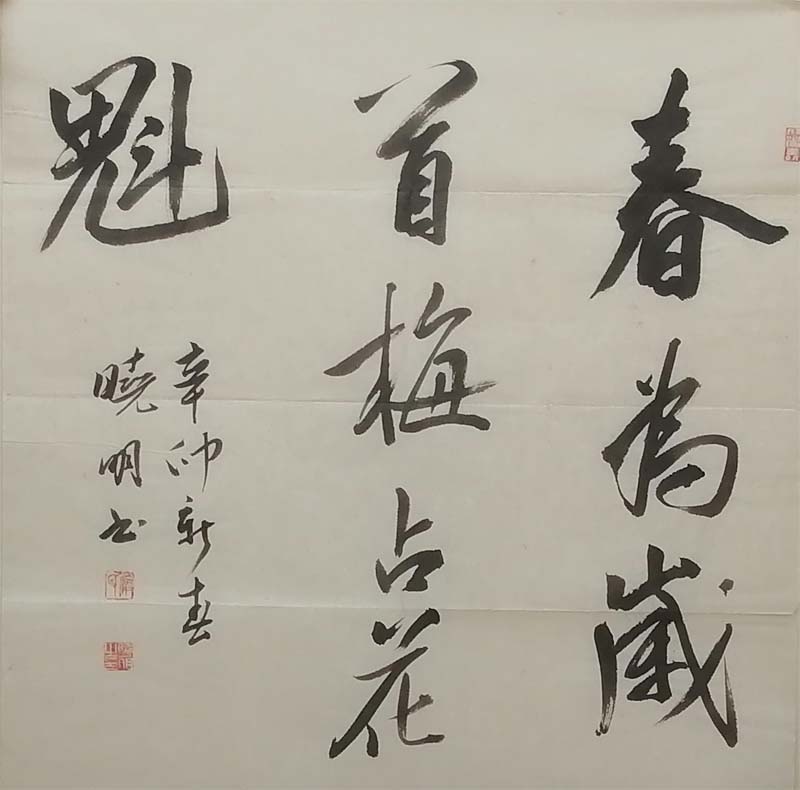 春為歲
首梅占花
魁
辛卯新春
曉明书